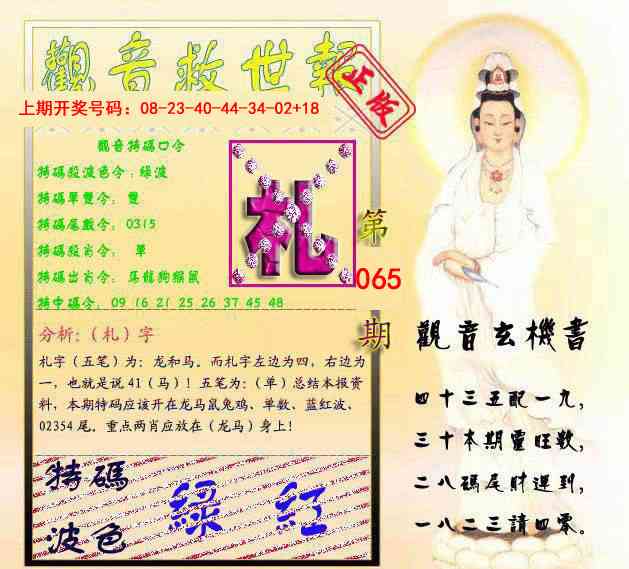 觀音救世報
正版
上期开奖号码：08-23-40-44-34-02+18
觀音特碼口令
特碼殺波色令：綠波
特碼單雙令：雙
特碼尾數令：0315
特碼殺肖令：單
特碼出肖令：馬龍狗猴鼠
特中碼令：09 16 21 25 26 37 45 48
札
第
065
期
分析:（札）字
札字（五笔）为：龙和马。而札字左边为四，右边为
一，也就是说 41（马）！五笔为：（单）总结本报资
料，本期特码应该开在龙马鼠兔鸡、单数、蓝红波、
02354 尾。重点两肖应放在（龙马）身上！
特碼
波色
綠 紅
觀音玄機書
四十三五配一九，
三十本期靈旺数，
二八碼尾財運到，
一八二三請四零。